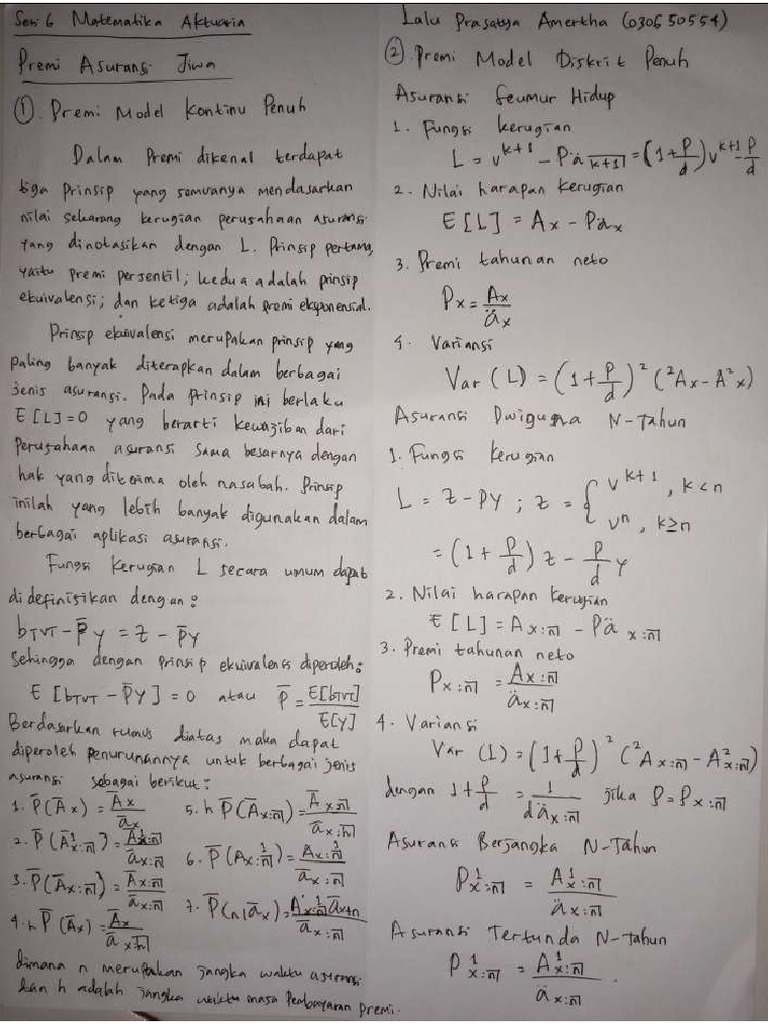 Sesi 6 Matematika Aktuaria
Premi Asuransi Jiwa
①. Premi Model Kontinu Penuh
Dalam Premi dikenal terdapat
tiga Prinsip yang semuanya mendasarkan
nilai sekarang kerugian perusahaan asuransi
yang dinotasikan dengan L. Prinsip pertama,
yaitu premi persentil; kedua adalah prinsip
ekuivalensi; dan ketiga adalah premi eksponensial.
Prinsip ekuivalensi merupakan prinsip yang
paling banyak diterapkan dalam berbagai
jenis asuransi. Pada Prinsip ini berlaku
E[L]=0 yang berarti kewajiban dari
Perusahaan asuransi sama besarnya dengan
hak yang diterima oleh nasabah. Prinsip
inilah yang lebih banyak digunakan dalam
berbagai aplikasi asuransi.
Fungsi Kerugian L secara umum dapat
didefinisikan dengan:
b_T v_T - P̄y = z - P̄y
Sehingga dengan prinsip ekuivalensi diperoleh:
E[b_T v_T - P̄Y] = 0 atau P̄ = E[b_T v_T] / E[Y]
Berdasarkan rumus diatas maka dapat
diperoleh penurunannya untuk berbagai jenis
asuransi sebagai berikut:
1. P̄(Āx) = Āx / āx
2. P̄(Ā¹x:n̅|) = Ā¹x:n̅| / āx:n̅|
3. P̄(Āx:n̅|) = Āx:n̅| / āx:n̅|
4. h P̄(Āx) = Āx / āx:h̅|
5. h P̄(Āx:n̅|) = Āx:n̅| / āx:h̅|
6. P̄(Ax:n̅|¹) = Ax:n̅|¹ / āx:n̅|
7. P̄(n|āx) = Ax:n̅|¹ āx+n / āx:n̅|
dimana n merupakan jangka waktu asuransi
dan h adalah jangka waktu masa Pembayaran premi.
Lalu Prasatya Amertha (030650554)
②. Premi Model Diskrit Penuh
Asuransi Seumur Hidup
1. Fungsi kerugian
L = v^(k+1) - Pä k+1̅| = (1 + P/d) v^(k+1) - P/d
2. Nilai harapan kerugian
E[L] = Ax - Päx
3. Premi tahunan neto
Px = Ax / äx
4. Variansi
Var (L) = (1 + P/d)² (²Ax - A²x)
Asuransi Dwiguna N-Tahun
1. Fungsi Kerugian
L = z - PY ; z = { v^(k+1) , k<n
v^n , k≥n
= (1 + P/d) z - P/d Y
2. Nilai harapan kerugian
E[L] = Ax:n̅| - Pä x:n̅|
3. Premi tahunan neto
Px:n̅| = Ax:n̅| / äx:n̅|
4. Variansi
Var (L) = (1 + P/d)² (²Ax:n̅| - A²x:n̅|)
dengan 1 + P/d = 1 / däx:n̅| jika P = Px:n̅|
Asuransi Berjangka N-Tahun
P¹x:n̅| = A¹x:n̅| / äx:n̅|
Asuransi Tertunda N-tahun
P x:n̅|¹ = A x:n̅|¹ / äx:n̅| .